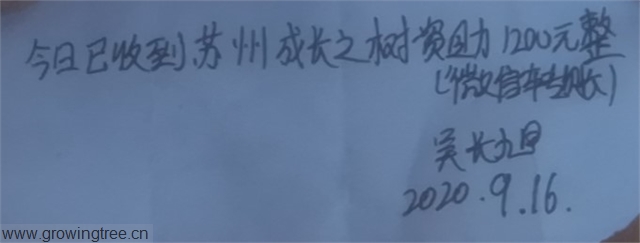 今日已收到苏州成长之树资助1200元整
(微信转账)
吴长
2020.9.16.
www.growingtree.cn